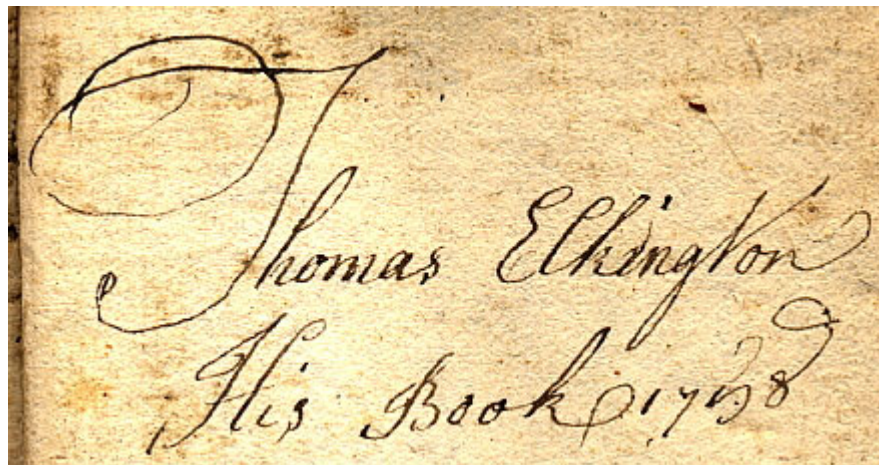 Thomas Elkington
His Book 1758